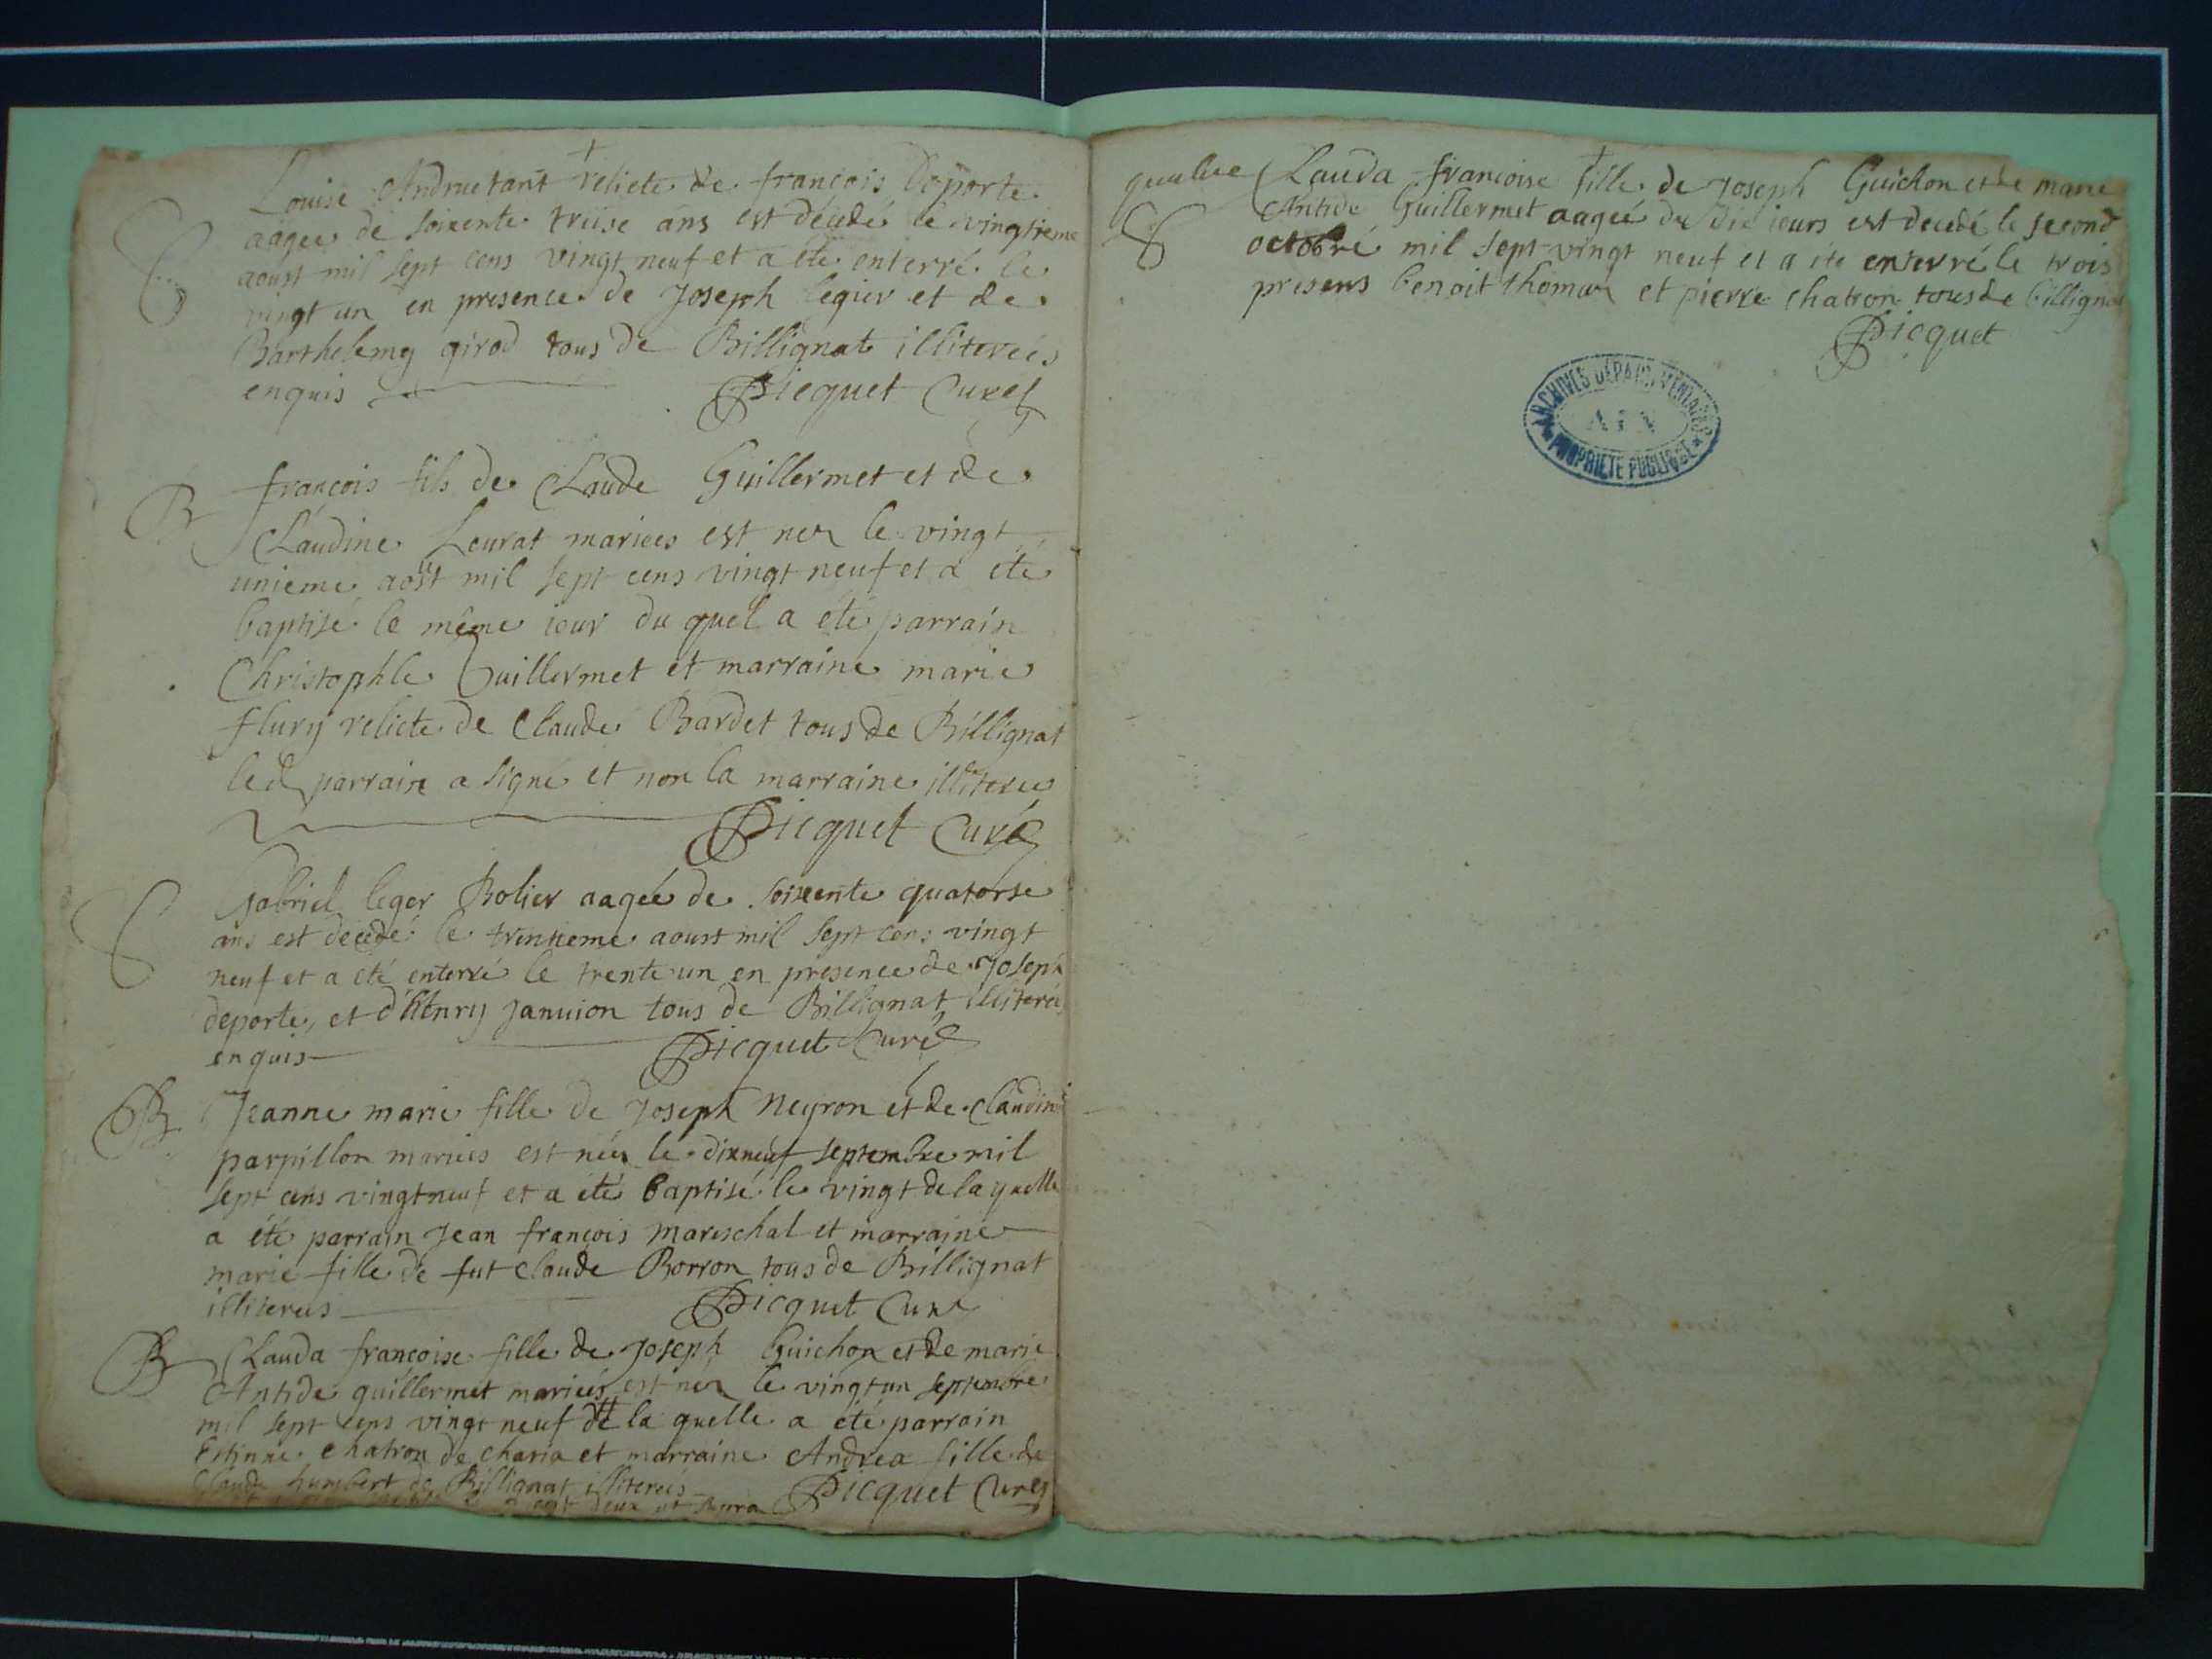 Louise Andruetant relicte de francois Deporte
aagee de soixente treise ans est décédé le vingtieme
aoust mil sept cens vingt neuf et a été enterré le
vingt un en presence de Joseph legier et de
Barthelemy girod tous de Billignat illiterées
enquis Picquet Curé
B françois fils de Claude Guillermet et de
Claudine Levrat mariees est nez le vingt
unieme aost mil sept cens vingt neuf et a été
baptisé le même iour du quel a été parrain
Christophle Guillermet et marraine marie
flury relicte de Claude Bardet tous de Billignat
led parrain a signé et non la marraine illiteree
Picquet Curé
Gabriel leger Bolier aageé de soixente quatorse
ans est décedé le trentieme aoust mil sept cens vingt
neuf et a eté enterré le trente un en presence de Joseph
deporte, et d'henry Januion tous de Billignat illiteré
enquis Picquet Curé
B Jeanne marie fille de Joseph Neyron et de Claudine
parpillon mariees est néé le dixneuf septembre mil
sept cens vingtneuf et a été baptisé le vingt de laquelle
a été parrain Jean françois mareschal et marraine
marie fille de fut Claude Borron tous de Billignat
illiterees Picquet Curé
B Clauda francoise fille de Joseph Guichon et de marie
Antide guillermet mariees est nez le vingtun septembre
mil sept cens vingt neuf de la quelle a été parrain
Estinne chatron de charia et marraine Andrea fille de
Claude humbert de Billignat illiterees Picquet Curé
vingt deux ut supra
Clauda francoise fille de Joseph Guichon et de marie
Antide Guillermet aageé de dix iours est decedé le second
octobre mil sept vingt neuf et a été enterré le trois
presens benoit thomas et pierre chatron tous de billignat
Picquet
ARCHIVES DÉPARTEMENTALES
AIN
PROPRIÉTÉ PUBLIQUE